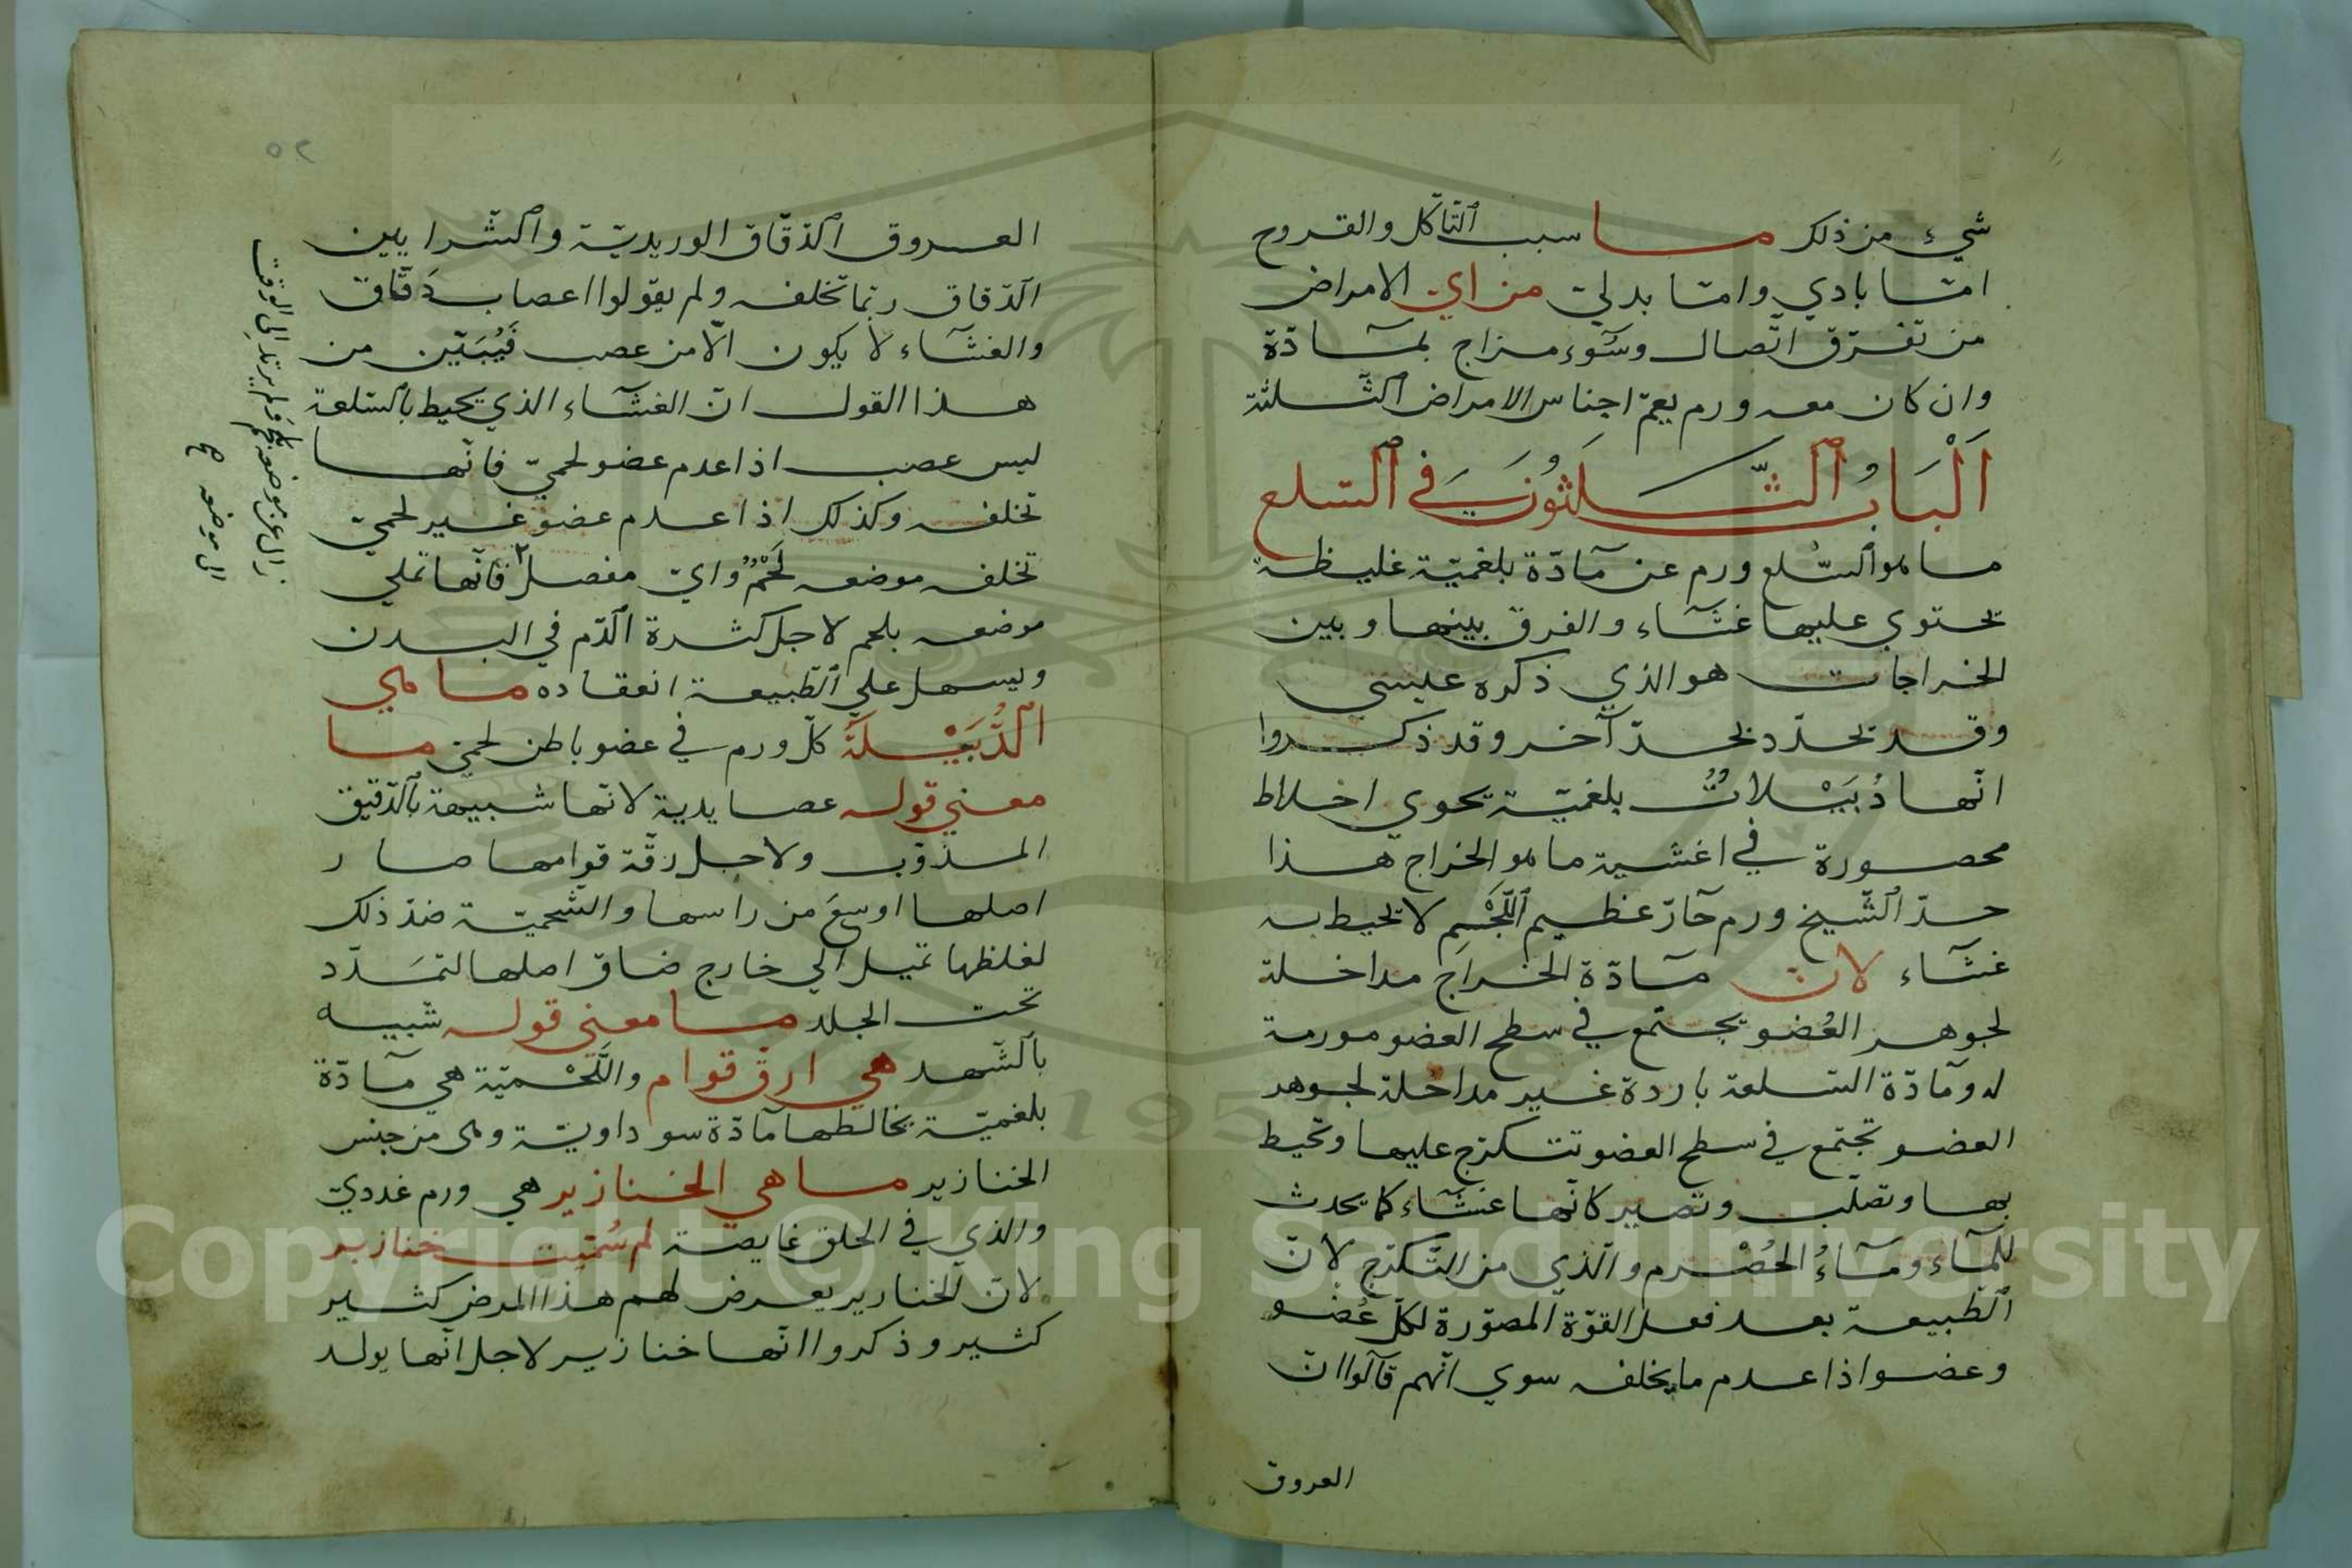 شيء من ذلك ما سبب التآكل والقروح
امتا بادي وامتا بدني من اي الامراض
من تفرّق اتّصال وسوء مزاج بمادّة
وان كان معه ورم يعمّ اجناس الامراض الثلثة
اَلْبَابُ الثّلثُونَ في السّلع
ما هو السّلع ورم عن مادّة بلغميّة غليظة
تحتوي عليها غشاء والفرق بينها وبين
الخراجات هو الذي ذكره عليسي
وقد تحدّد بحدّ آخر وقد ذكروا
انّها دُبَيْلاتٌ بلغميّة يحوي اخلاط
محصورة في اغشية ما هو الخراج هذا
حدّ الشّيخ ورم حارّ عظيم الحجم لا تحيط به
غشاء لان مادّة الخراج مداخلة
لجوهر العُضو يجتمع في سطح العضو مورمة
له ومادّة السلعة باردة غير مداخلة لجوهر
العضو تجتمع في سطح العضو تتكرّج عليها وتحيط
بها وتصلّب وتصير كانّها غشاء كما يحدث
للماء وماءُ الحُصْرم والذي من التّكرّج لانّ
الطّبيعة بعد فعل القوّة المصوّرة لكلّ عُضو
وعضو اذا عدم ما يخلفه سوي انّهم قالوا انّ
العروق
٥٢
العروق الدّقاق الوريديّة والشّرايين
الدّقاق ربّما تخلفه ولم يقولوا اعصاب دقاق
والغشاء لا يكون الّا من عصب فَيُبَيّن من
هذا القول انّ الغشاء الذي يحيط بالسّلعة
ليس عصب اذا عدم عضو لحميّ فانّها
تخلفه وكذلك اذا عدم عضو غير لحميّ
تخلفه موضعه لَحْمٌ وايّ مفصل ٢ فانّها تملي
موضعه بلحم لاجل كثرة الدّم في البدن
ويسهل علي الطّبيعة انعقاده ما هي
الدُّبَيْلَة كلّ ورم في عضو باطن لحميّ ما
معني قوله عصايدية لانّها شبيهة بالدّقيق
المذوّب ولاجل رقّة قوامها صار
اصلها اوسع من راسها والشّحميّة ضدّ ذلك
لغلظها تميل الي خارج ضاق اصلها لتمدّد
تحت الجلد ما معني قوله شبيه
بالشّهد هي ارق قوام واللَّحْميّة هي مادّة
بلغميّة يخالطها مادّة سوداويّة وهي من جنس
الخنازير ما هي الخنازير هي ورم غدديّ
والذي في الحلق غايصة لم سُمّيت خنازير
لانّ الخنازير يعرض لهم هذا المرض كثير
كثير وذكروا انّها خنازير لاجل انّها يولد
زال عن موضعه ولم يرتد الي الوقت
الي موضعه